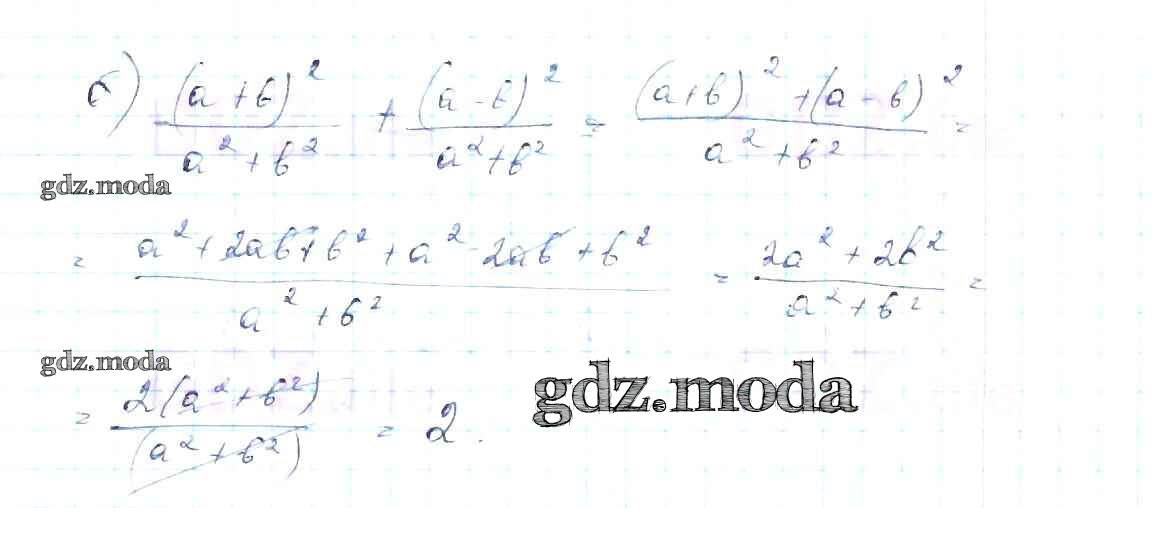 б) (a + b)² / (a² + b²) + (a - b)² / (a² + b²) = ((a + b)² + (a - b)²) / (a² + b²) =
gdz.moda
= (a² + 2ab + b² + a² - 2ab + b²) / (a² + b²) = (2a² + 2b²) / (a² + b²) =
gdz.moda
gdz.moda
= 2(a² + b²) / (a² + b²) = 2.